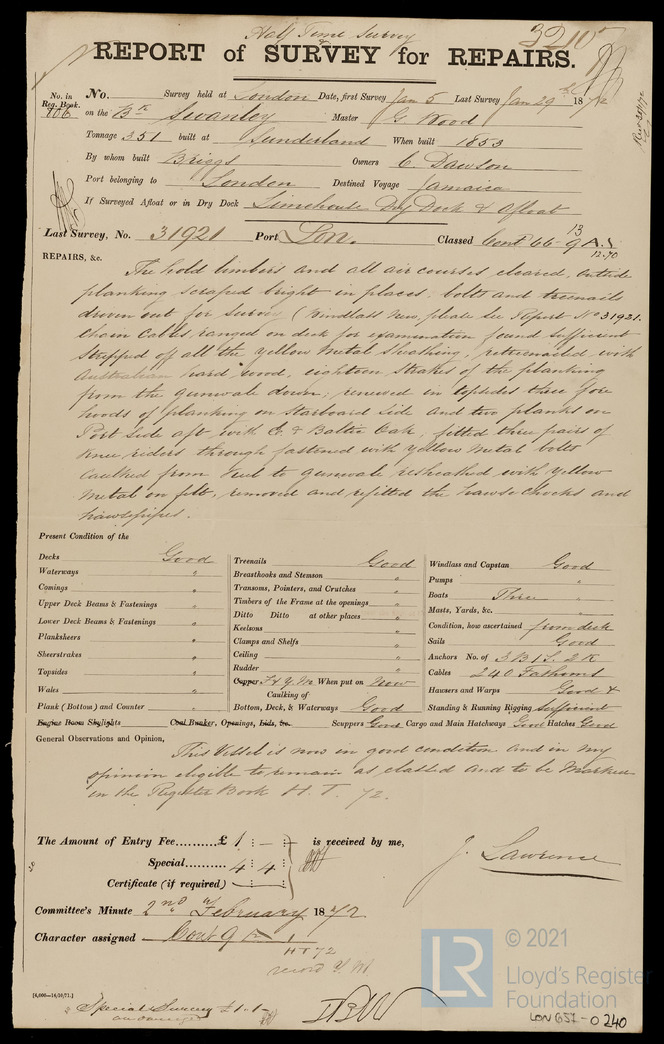 Half Time Survey
32107
REPORT of SURVEY for REPAIRS.
No. in Reg. Book. 806
No. Survey held at London Date, first Survey Jan 5 Last Survey Jan 29th 1872
on the Bk Swanley Master G. Wood
Tonnage 351 built at Sunderland When built 1853
By whom built Briggs Owners C. Dawson
Port belonging to London Destined Voyage Jamaica
If Surveyed Afloat or in Dry Dock Limehouse Dry Dock & Afloat
Last Survey, No. 31921 Port Lon. Classed Cont 66-9 A.1
13
12.70
REPAIRS, &c.
The hold limbers and all air courses cleared, outside
planking scraped bright in places, bolts and treenails
driven out for survey (Windlass New, please see Report No 31921.
Chain Cables, ranged on deck for examination found sufficient
stripped off all the yellow metal sheathing, retreenailed with
Australian hard wood, eighteen strakes of the planking
from the gunwale down, renewed in topsides three fore
hoods of planking on Starboard side and two planks on
Port Side aft with E. & Baltic Oak, fitted three pairs of
knee riders through fastened with yellow metal bolts
Caulked from keel to gunwale resheathed with yellow
Metal on felt, removed and refitted the hawse chocks and
hawsepipes.
Present Condition of the
Decks Good
Waterways "
Comings "
Upper Deck Beams & Fastenings "
Lower Deck Beams & Fastenings "
Planksheers "
Sheerstrakes "
Topsides "
Wales "
Plank (Bottom) and Counter "
Engine Room Skylights Coal Bunker, Openings, Lids, &c.
Treenails Good
Breasthooks and Stemson "
Transoms, Pointers, and Crutches "
Timbers of the Frame at the openings "
Ditto Ditto at other places "
Keelsons "
Clamps and Shelfs "
Ceiling "
Rudder "
Copper F & Y.M. When put on Now
Caulking of
Bottom, Deck, & Waterways Good
Windlass and Capstan Good
Pumps "
Boats Three "
Masts, Yards, &c. "
Condition, how ascertained from deck
Sails Good
Anchors No. of 3 B 1 S. 2 K
Cables 240 Fathoms
Hawsers and Warps Good &
Standing & Running Rigging Sufficient
Scuppers Good Cargo and Main Hatchways Good Hatches Good
General Observations and Opinion,
This Vessel is now in good condition and in my
opinion eligible to remain as classed and to be Marked
in the Register Book H. T. 72.
The Amount of Entry Fee.........£ 1 : - : is received by me,
Special......... 4 : 4 :
Certificate (if required)
J. Lawrence
Committee's Minute 2nd February 1872
Character assigned Cont 9 A 1
HT 72
record Y M
[6,000—16/10/71.]
Special Survey £1.1-
© 2021
LR
Lloyd's Register
Foundation
LON 651-0240